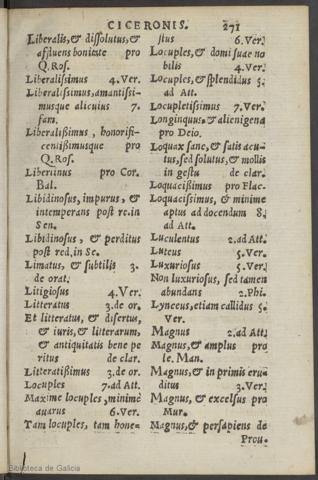 CICERONIS. 271
Liberalis, & dissolutus, &
afluens bonitate pro
Q. Ros.
Liberalissimus 4. Ver.
Liberalissimus, amantissi-
musque alicuius 7.
fam.
Liberalißimus, honorifi-
centißimusque pro
Q. Ros.
Libertinus pro Cor.
Bal.
Libidinosus, impurus, &
intemperans post re. in
Sen.
Libidinosus, & perditus
post red, in Se.
Limatus, & subtilis 3.
de orat.
Litigiosus 4. Ver.
Litteratus 3. de or.
Et litteratus, & disertus,
& iuris, & litterarum,
& antiquitatis bene pe
ritus de clar.
Litteratißimus 3. de or.
Locuples 7. ad Att.
Maxime locuples, minimè
auarus 6. Ver.
Tam locuples, tam hone-
stus 6. Ver.
Locuples, & domi suae no
bilis 4. Ver.
Locuples, & splendidus 5.
ad Att.
Locupletissimus 7. Ver.
Longinquus, & alienigena
pro Deio.
Loquax sane, & satis acu-
tus, sed solutus, & mollis
in gestu de clar.
Loquacißimus pro Flac.
Loquacissimus, & minime
aptus ad docendum 8.
ad Att.
Luculentus 2. ad Att.
Luteus 5. Ver.
Luxuriosus 5. Ver.
Non luxuriosus, sed tamen
abundans 2. Phi.
Lynceus, etiam callidus 5.
Ver.
Magnus 2. ad Att.
Magnus, & amplus pro
le. Man.
Magnus, & in primis eru-
ditus 3. Ver.
Magnus, & excelsus pro
Mur.
Magnus, & persapiens de
Prou.
Biblioteca de Galicia